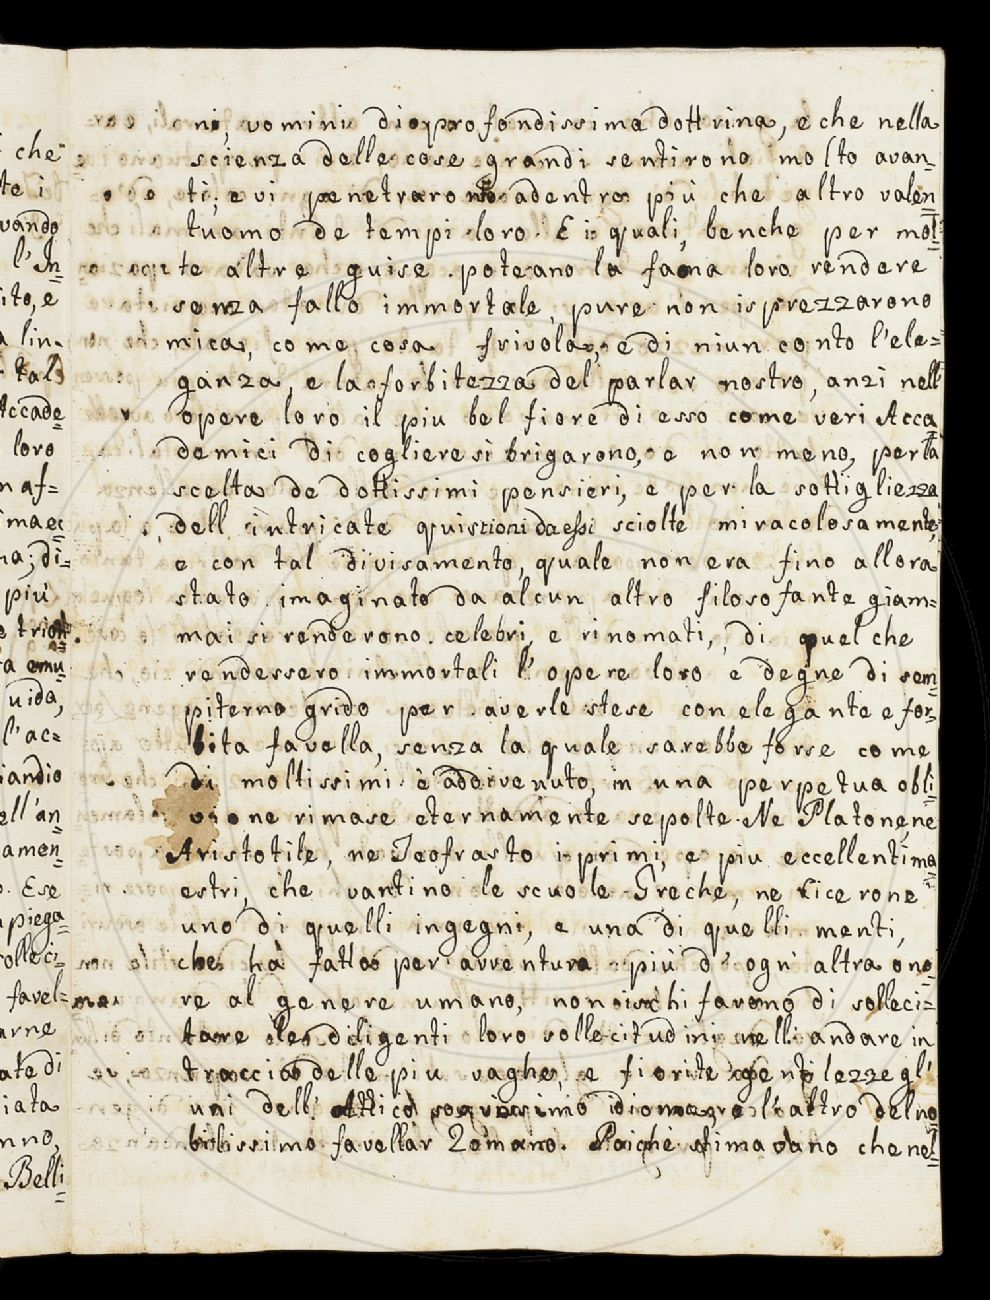 ni, uomini di profondissima dottrina, e che nella
scienza delle cose grandi sentirono molto avan=
ti; e vi penetrarono adentro più che altro valen=
tuomo de tempi loro. E i quali, benche per mol=
te altre guise poteano la fama loro rendere
senza fallo immortale, pure non isprezzarono
mica, come cosa frivola, e di niun conto l'ele=
ganza, e la forbitezza del parlar nostro, anzi nell
opere loro il piu bel fiore di esso come veri Acca=
demici di cogliere si brigarono, e non meno, per la
scelta de dottissimi pensieri, e per la sottigliezza
dell intricate quistioni da essi sciolte miracolosamente,
e con tal divisamento, quale non era fino allora
stato imaginato da alcun altro filosofante giam=
mai si renderono celebri, e rinomati, di quel che
rendessero immortali l' opere loro e degne di sem=
piterno grido per averle stese con elegante e for=
bita favella, senza la quale sarebbe forse come
di moltissimi è addivenuto, in una perpetua obli=
vione rimase eternamente sepolte. Ne Platone, ne
Aristotile, ne Teofrasto i primi, e piu eccellenti ma=
estri, che vantino le scuole Greche, ne Cicerone
uno di quelli ingegni, e una di quelli menti,
che hà fatto per avventura più d' ogn' altra ono=
re al genere umano, non ischifarono di solleci=
tare le diligenti loro sollecitudini nell andare in
traccia delle piu vaghe, e fiorite gentilezze gl'
uni dell' Attico idioma, e l'altro del no=
bilissimo favellar Romano. Poichè stimavano che nel=
che
te i
vando
l' In=
ito, e
a lin=
tal
Accade=
loro
n af=
ima ec
na; di=
più
a emu=
uida,
l'ac=
iandio
ell'an=
amen=
o. E se
piega=
olleci=
favel=
arne
ate di
iata
nno,
Belli=